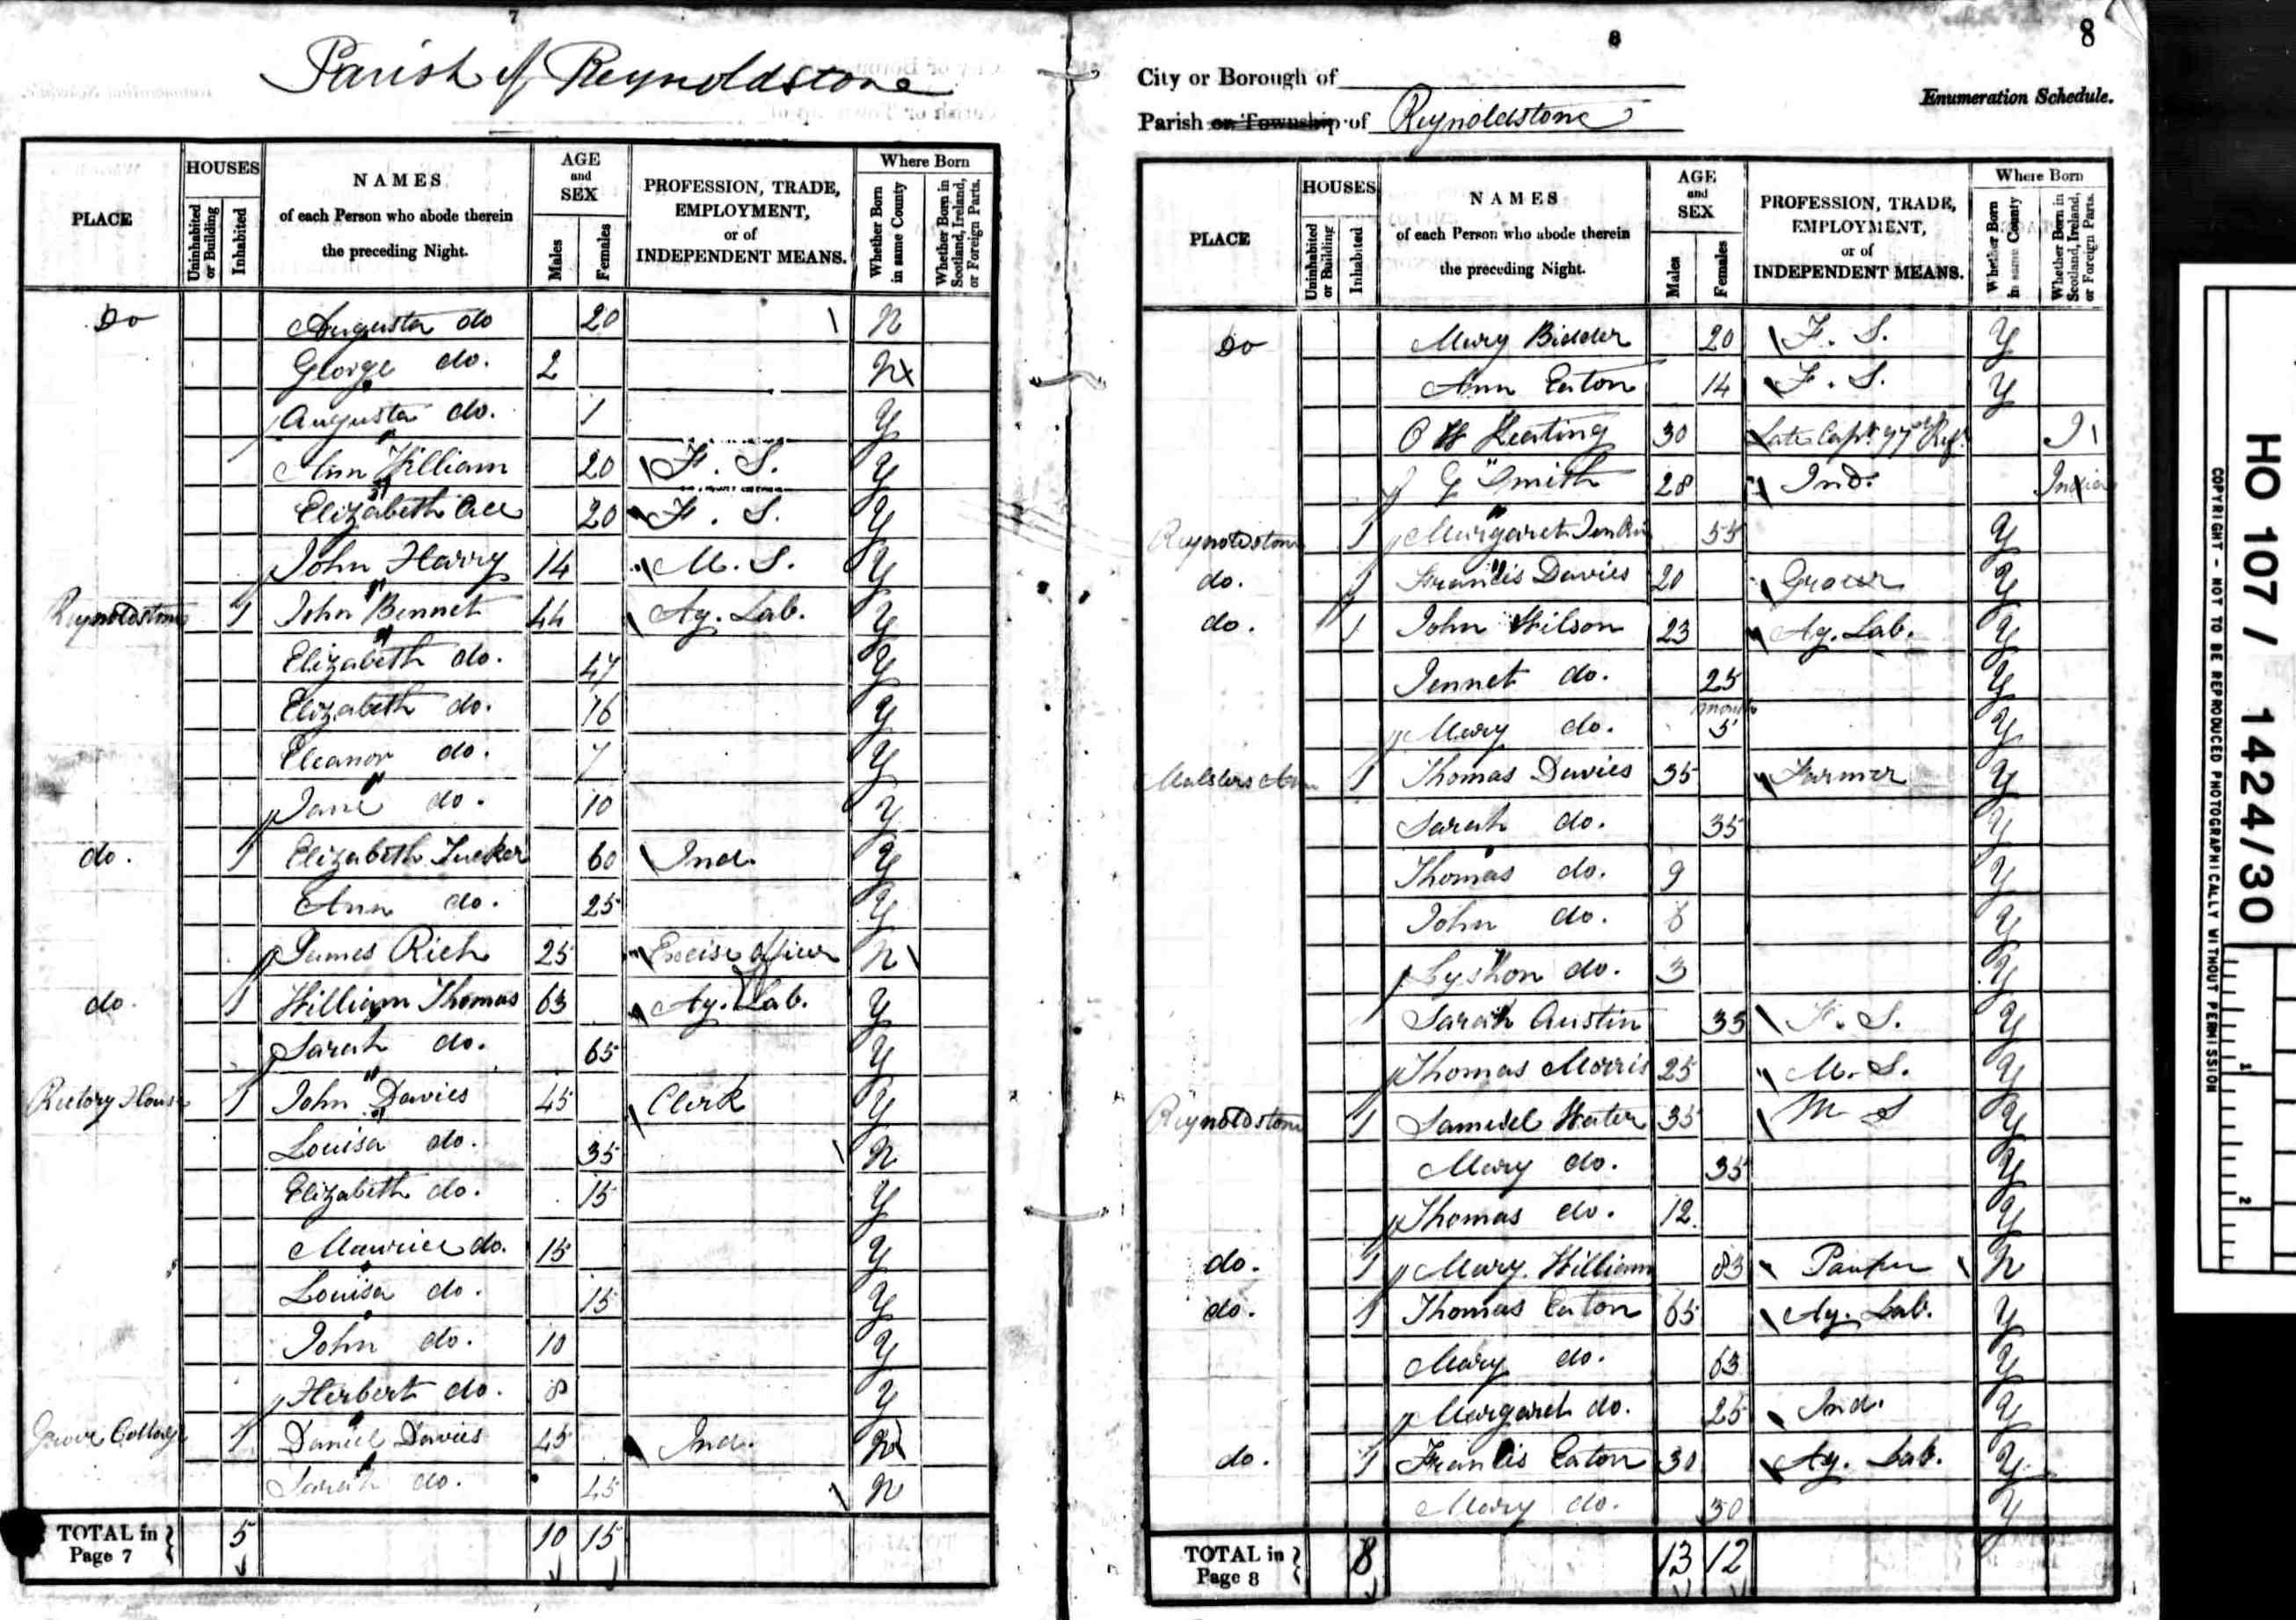 7
Parish of Reynoldstone
PLACE HOUSES Uninhabited or Building Inhabited NAMES of each Person who abode therein the preceding Night. AGE and SEX Males Females PROFESSION, TRADE, EMPLOYMENT, or of INDEPENDENT MEANS. Where Born Whether Born in same County Whether Born in Scotland, Ireland, or Foreign Parts.
Do Augusta do 20 N
George do. 2 N
Augusta do. 1 Y
Ann William 20 F. S. Y
Elizabeth 20 F. S. Y
John Harry 14 M. S. Y
Reynoldstone 1 John Bennet 44 Ag. Lab. Y
Elizabeth do. 47 Y
Elizabeth do. 16 Y
Eleanor do. 7 Y
Jane do. 10 Y
do. 1 Elizabeth Tucker 60 Ind. Y
Ann do. 25 Y
James Rich 25 Excise Officer N
do. 1 William Thomas 63 Ag. Lab. Y
Sarah do. 65 Y
Rectory House 1 John Davies 45 Clerk Y
Louisa do. 35 N
Elizabeth do. 15 Y
Maurice do. 15 Y
Louisa do. 15 Y
John do. 10 Y
Herbert do. 8 Y
Grove Cottage 1 Daniel Davies 45 Ind. N
Sarah do. 45 N
TOTAL in Page 7 5 10 15
8
8
City or Borough of
Enumeration Schedule.
Parish or Township of Reynoldstone
PLACE HOUSES Uninhabited or Building Inhabited NAMES of each Person who abode therein the preceding Night. AGE and SEX Males Females PROFESSION, TRADE, EMPLOYMENT, or of INDEPENDENT MEANS. Where Born Whether Born in same County Whether Born in Scotland, Ireland, or Foreign Parts.
Do Mary Bidder 20 F. S. Y
Ann Eaton 14 F. S. Y
O W Keating 30 Late Capt. 97 I
G Smith 28 Ind. India
Reynoldstone 1 Margaret Jenkin 55 Y
do. 1 Francis Davies 20 Grocer Y
do. 1 John Wilson 23 Ag. Lab. Y
Jennet do. 25 Y
Mary do. 5 months Y
Malsters 1 Thomas Davies 35 Farmer Y
Sarah do. 35 Y
Thomas do. 9 Y
John do. Y
Lyshon do. 3 Y
Sarah Austin 35 F. S. Y
Thomas Morris 25 M. S. Y
Reynoldstone 1 Samuel Water 35 M S Y
Mary do. 35 Y
Thomas do. 12 Y
do. 1 Mary William 83 Pauper N
do. 1 Thomas Eaton 65 Ag. Lab. Y
Mary do. 63 Y
Margaret do. 25 Ind. Y
do. 1 Francis Eaton 30 Ag. Lab. Y
Mary do. 30 Y
TOTAL in Page 8 8 13 12
HO 107 / 1424/30
COPYRIGHT - NOT TO BE REPRODUCED PHOTOGRAPHICALLY WITHOUT PERMISSION
1
2